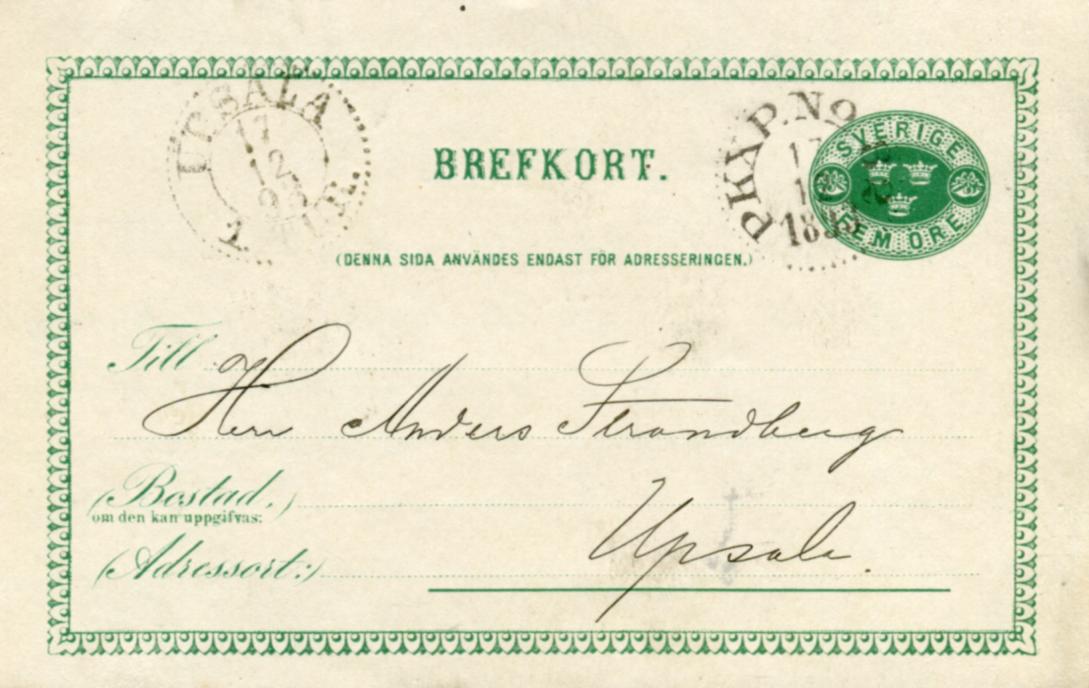 UPSALA
17
12
PKXP.No
17
1895
SVERIGE
FEM ÖRE
BREFKORT.
(DENNA SIDA ANVÄNDES ENDAST FÖR ADRESSERINGEN.)
Till
Herr Anders Strandberg
(Bostad,)
om den kan uppgifvas:
Upsala.
(Adressort:)